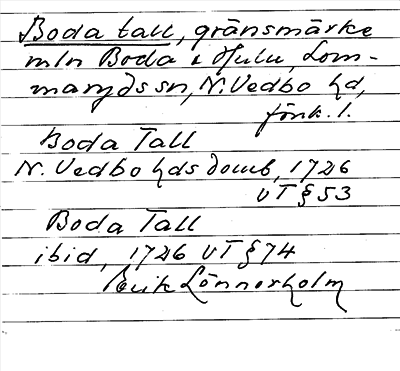 Boda tall, gränsmärke
mln Boda o Hulu, Lom-
maryds sn, N. Vedbo hd,
Jönk. l.
Boda Tall
N. Vedbo hds domb, 1726
VT § 53
Boda Tall
ibid, 1726 VT § 74
Erik Lönnerholm